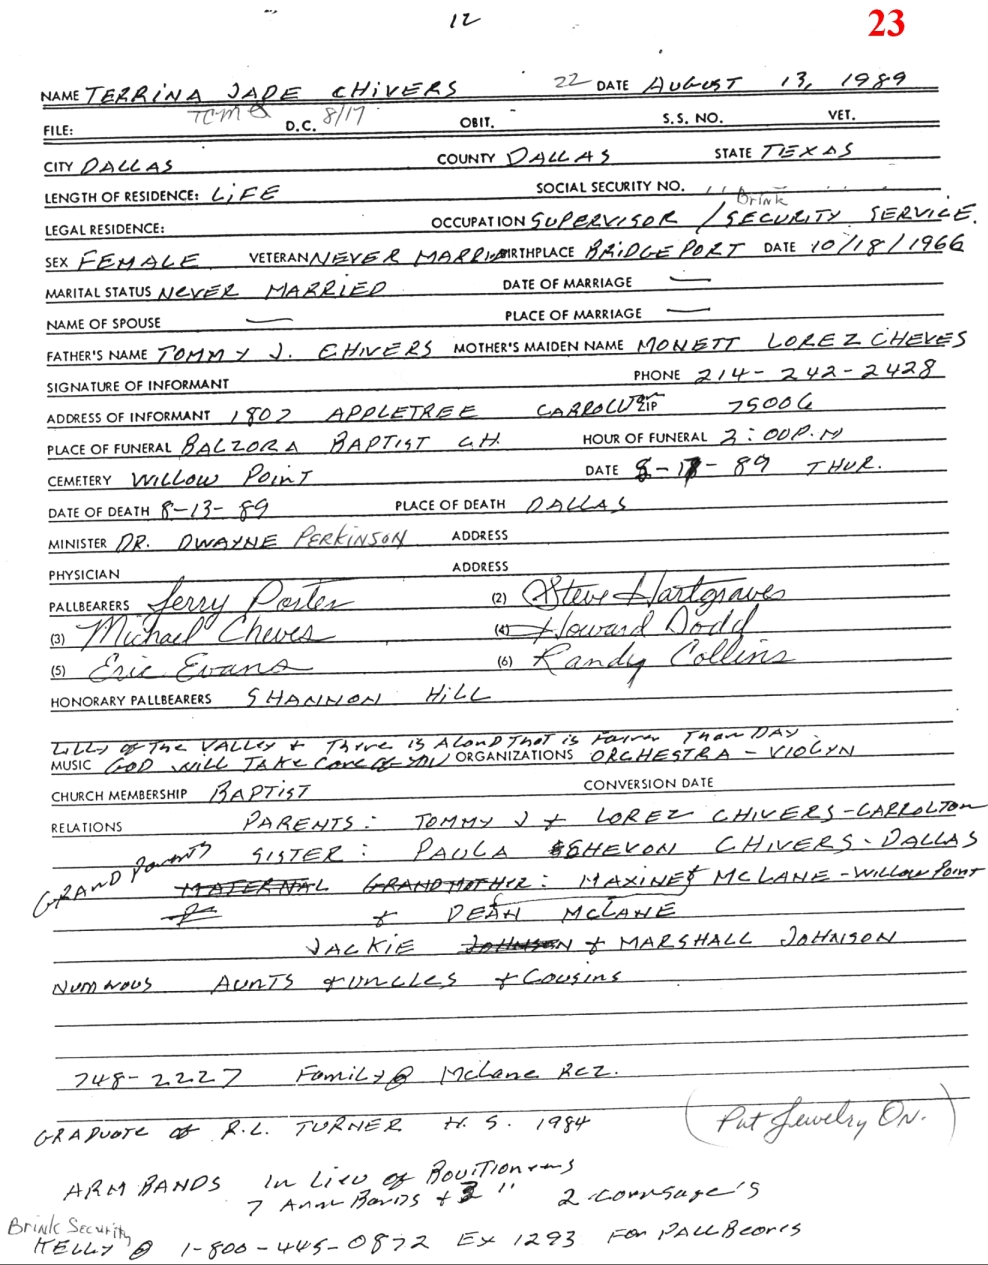 12
23
NAME TERRINA JADE CHIVERS 22 DATE AUGUST 13, 1989
FILE: D.C. 8/17 OBIT. S.S. NO. VET.
CITY DALLAS COUNTY DALLAS STATE TEXAS
LENGTH OF RESIDENCE: LIFE SOCIAL SECURITY NO.
Brink
LEGAL RESIDENCE: OCCUPATION SUPERVISOR / SECURITY SERVICE.
SEX FEMALE VETERAN NEVER MARRI BIRTHPLACE BRIDGEPORT DATE 10/18/1966
MARITAL STATUS NEVER MARRIED DATE OF MARRIAGE —
NAME OF SPOUSE — PLACE OF MARRIAGE —
FATHER'S NAME TOMMY J. CHIVERS MOTHER'S MAIDEN NAME MONETT LOREZ CHEVES
SIGNATURE OF INFORMANT PHONE 214-242-2428
ADDRESS OF INFORMANT 1802 APPLETREE CARROLL ZIP 75006
PLACE OF FUNERAL BALZORA BAPTIST CH. HOUR OF FUNERAL 2:00 P.M
CEMETERY WILLOW POINT DATE 8-17-89 THUR.
DATE OF DEATH 8-13-89 PLACE OF DEATH DALLAS
MINISTER DR. DWAYNE PERKINSON ADDRESS
PHYSICIAN ADDRESS
PALLBEARERS Jerry Porter (2) Steve Hartgraves
(3) Michael Cheves (4) Howard Dodd
(5) Eric Evans (6) Randy Collins
HONORARY PALLBEARERS SHANNON HILL
LILLY OF THE VALLEY + There is A LAND THAT is Fairer Than DAY
MUSIC GOD will TAKE Care of YOU ORGANIZATIONS ORCHESTRA - VIOLYN
CHURCH MEMBERSHIP BAPTIST CONVERSION DATE
RELATIONS PARENTS: TOMMY J + LOREZ CHIVERS-CARROLTON
SISTER: PAULA SHEVON CHIVERS-DALLAS
GRAND Parents MATERNAL GRANDMOTHER: MAXINE MCLANE-Willow Point
+ DEAN MCLANE
JACKIE JOHNSON + MARSHALL JOHNSON
NUMROUS AUNTS + UNCLES + Cousins
748-2227 Family @ McLane Rez.
GRADUATE of R.L. TURNER H.S. 1984 (Put Jewelry On.)
ARM BANDS In Lieu of
7 Arm Bands + 2 " 2 corrsage's
Brink Security
KELLY @ 1-800-445-0872 Ex 1293 For PALLBearers